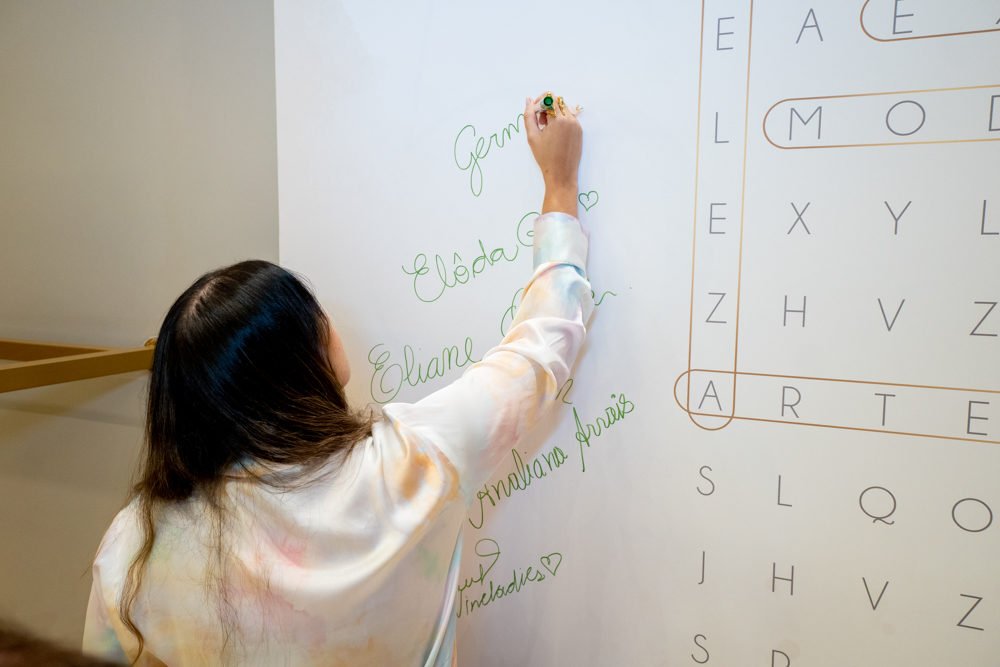 Germ
Elôda
Eliane
Analiana Arrais
up
Wineladies
E A E
L M O D
E X Y L
Z H V Z
A R T E
S L Q O
J H V Z
S